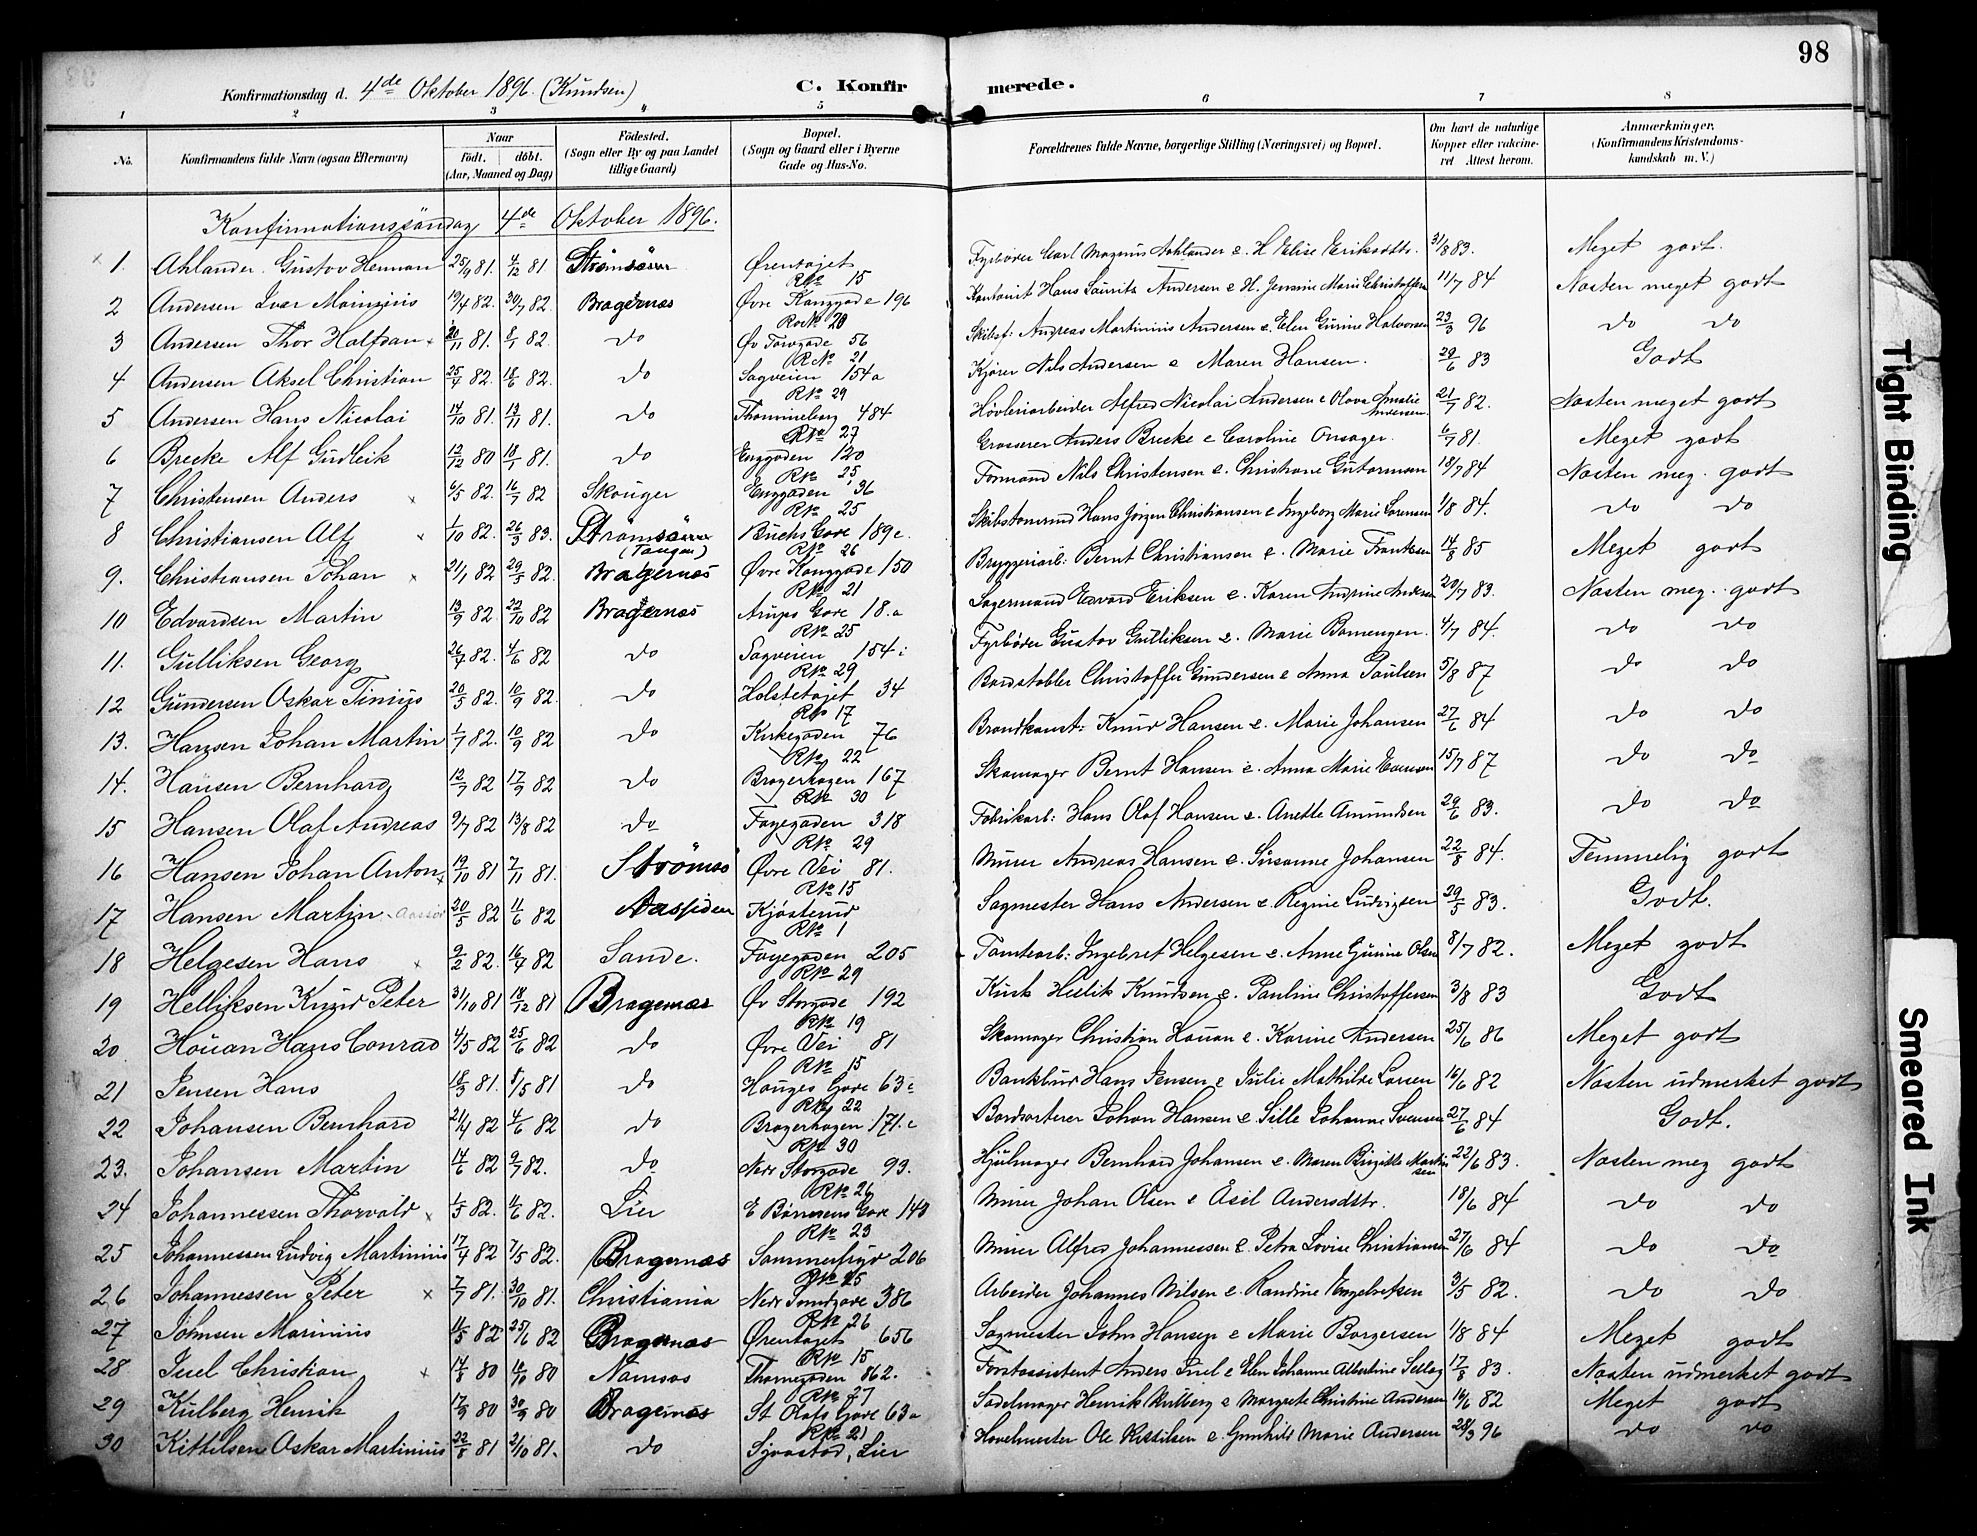 98
Konfirmationsdag d. 4de Oktober 1896. (Knudsen) C. Konfirmerede.
1 2 3 4 5 6 7 8
No. Konfirmandens fulde Navn (ogsaa Efternavn) Naar födt. döbt. (Aar, Maaned og Dag) Födested. (Sogn eller By og paa Landet tillige Gaard) Bopæl. (Sogn og Gaard eller i Byerne Gade og Hus-No. Forældrenes fulde Navne, borgerlige Stilling (Næringsvei) og Bopæl. Om havt de naturlige Kopper eller vakcineret Attest herom. Anmærkninger. (Konfirmandens Kristendomskundskab m. V.)
Konfirmationssöndag 4de Oktober 1896.
1. Ahlander Gustov Herman 25/9 81. 4/12 81 Strömsö Ørentøjet R No 15 Fyrbøder Carl Magnus Aahlander e. H Elise Eriksdttr. 31/8 83. Meget godt.
2 Andersen Ivar 19/4 82. 30/7 82. Bragernæs Øvre Langgade 196 Rode 20 Hans Lauritz Andersen e. H. Marie Christoffersen 11/7 84 Næsten meget godt
3 Andersen Thor Halfdan 20/11 81. 8/1 82. do Øv Torvgade 56 R No 21 Skibsf: Andreas Martinius Andersen e. Elen Gurine Halvorsen 23/3 96 do do
4 Andersen Aksel Christian 25/4 82. 18/6 82. do Sagveien 154a R No 29 Kjører Nils Andersen e Maren Hansen. 29/6 83 Godt
5 Andersen Hans Nicolai 14/10 81. 13/11 81. do 484 R No 27 Høvleriarbeider Alfred Nicolai Andersen e Olava Amalie Andersen 21/7 82. Næsten meget godt
6 Brecke Alf Gudleik 12/12 80 18/1 81. do Enggaden 120 R No 25 Grosserer Anders Brecke e Caroline Onsager. 6/7 81. Meget godt
7 Christensen Anders 6/5 82. 16/7 82 Skouger Enggaden 36 R No 25 Formand Nils Christensen e. Christiane Gutormsen 18/7 84 Næsten meg. godt
8 Christiansen Alf 1/10 82. 26/3 83. Strömsö (Tangen) Buchs Gade 189c. R No 26 Skibstømmermd Hans Jørgen Christiansen e Ingeborg Marie Sorensen 1/8 84. do do
9. Christiansen Johan 21/1 82 29/5 82. Bragernæs Øvre Langgade 150 R No 21 Bryggeriarb. Bernt Christiansen e. Marie Frantzen 14/8 85 Meget godt
10 Edvardsen Martin 13/9 82 22/10 82 Bragernæs Arups Gade 18.a R No 25 Sagermand Edvard Eriksen e. Karen Andrine Andersen 20/7 83. Næsten meg. godt
11. Gulliksen Georg 26/4 82. 4/6 82 do Sagveien 154i R No 29 Fyrbøder Gustov Gulliksen e. Marie Bomengen. 4/7 84. do do
12 Gundersen Oskar Tinius 20/5 82. 10/9 82. do Holstetøjet 34 R No 17 Bordstabler Christoffer Gundersen e Anna Paulsen 5/8 87 do do
13. Hansen Johan Martin 1/7 82. 10/9 82 do Kirkegaden 76 R No 22 Brandkonst: Knud Hansen e. Marie Johansen 27/6 84 do do
14. Hansen Bernhard 12/7 82 17/9 82 do Bragerhagen 167 R No 30 Skomager Bernt Hansen e. Anna Marie Evensen 15/7 87 do do
15 Hansen Olaf Andreas 9/7 82 13/8 82 do Fayegaden 318 R No 29 Fabrikarb: Hans Olaf Hansen e. Anette Amundsen 29/6 83. do do
16 Hansen Johan Anton 19/10 81 7/11 81. Strömsö Øvre Vei 81. R No 15 Murer Andreas Hansen e. Susanne Johansen 22/8 84. Temmelig godt
17 Hansen Martin 20/5 82 11/6 82 Aassiden Kjøsterud R No 1 Sagmester Hans Andersen e. Regine Ludvigsen 29/5 83. Godt.
18 Helgesen Hans 2/2 82. 16/4 82 Sande. Fayegaden 205 R No 29 Tomtearb: Ingebret Helgesen e. Anne Gurine Olsen 8/7 82. Meget godt
19 Helliksen Knud Peter 31/10 81 18/12 81 Bragernæs Øv Storgade 192 R No 19 Kusk Hellik Knudsen e. Pauline Christoffersen 3/8 83 Godt
20 Houan Hans Conrad 4/5 82 25/6 82 do Øvre Vei 81 R No 15 Skomager Christian Houan e. Karine Andersen 25/6 86 Meget godt
21 Jensen Hans 18/3 81. 8/5 81 do Hauges Gade 63c R No 22 Bankbud Hans Jensen e Julie Mathilde Larsen 16/6 82 Næsten udmerket godt
22 Johansen Bernhard 21/4 82 4/6 82 do Bragerhagen 171.c R No 30 Bordsorterer Johan Hansen e Sille Johanne Svensen 27/6 84 Godt.
23. Johansen Martin 14/6 82 9/7 82. do Nedr Storgade 93. R No 26 Hjulmager Bernhard Johansen e. Maren Birgitte Martinsen 22/6 83. Næsten meg godt
24 Johannessen Thorvald 1/5 82. 11/6 82. Lier E Børresens Gade 140 R No 23 Murer Johan Olsen e Åsil Andersdtr. 18/6 84 do do
25 Johannessen Ludvig Martinius 17/4 82 7/5 82. Bragernæs Sommerfryd 206 R No 25 Murer Alfred Johannessen e. Petra Lovise Christiansen 27/6 84 do do
26 Johannessen Peter 7/7 81. 30/10 81. Christiania Nedr Sundgade 386 R No 26 Arbeider Johannes Nilsen e. Randine Engebretsen 3/5 82. do do
27 Johnsen Marinius 11/5 82 25/6 82 Bragernæs Ørentøjet 656 R No 15 Sagmester John Hansen e Marie Borgersen 1/8 84 Meget godt
28 Juel Christian 14/8 80 10/10 80 Namsos Thornegaden 862. R No 27 Forstassistent Anders Juel e Elen Johanne Albertine Selleg 17/8 83. Næsten udmerket godt
29 Kulberg Henrik 17/9 80 30/9 80 Bragernæs St Olafs Gade 63a R No 21 Sadelmager Henrik Kulberg e Margrete Christine Andersen 16/6 82 Meget godt
30 Kittelsen Oskar Martinius 22/8 81 2/10 81. do Sjøvastad, Lier Hovelmester Ole Kittilsen e. Gunhild Marie Andersen 28/3 96 do do
Tight Binding
Smeared Ink